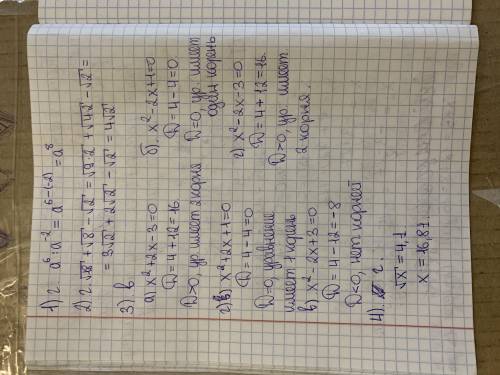 1) г a⁶ : a⁻² = a⁶⁻⁽⁻²⁾ = a⁸
2) г. √18 + √8 - √2 = √9·2 + √4·2 - √2 =
= 3√2 + 2√2 - √2 = 4√2
3) в
а) x² + 2x - 3 = 0
D = 4 + 12 = 16
D>0, ур имеет 2 корня
б) x² - 2x + 1 = 0
D = 4 - 4 = 0.
D=0, ур. имеет
один корень
в) x² + 2x + 1 = 0
D = 4 - 4 = 0
D=0, уравнение
имеет 1 корень
г) x² - 2x - 3 = 0
D = 4 + 12 = 16.
D>0, ур имеет
2 корня.
в) x² - 2x + 3 = 0
D = 4 - 12 = -8
D<0, нет корней
4) г.
√x = 4,1
x = 16,81.